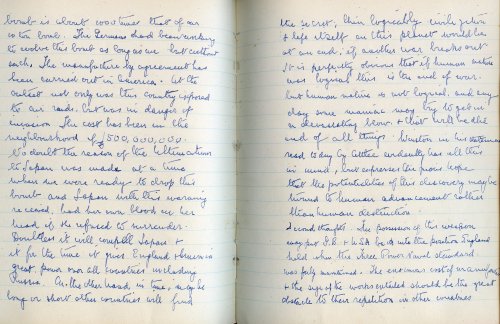 bomb is about 1000 times that of our
10 ton bomb. The Germans had been working
to evolve this bomb as long as we but without
such. The manufacture by agreement has
been carried out in America. At the
outset not only was this country exposed
to air raids, but was in danger of
invasion. The cost has been in the
neighbourhood of £500,000,000.
No doubt the reason of the Ultimatum
to Japan was made at a time
when we were ready to drop this
bomb and Japan with this warning
received, had her own blood on her
head if she refused to surrender.
Doubtless it will compel Japan &
it for the time it gives England & America
great power over all countries including
Russia. On the other hand, in time, maybe
long or short other countries will find
the secret, then logically civilization
& life itself on this planet would be
at an end, if another war breaks out
It is perfectly obvious that if human nature
was logical this is the end of war.
but human nature is not logical, and any
day some maniac may try to get in
a devastating blow & that will be the
end of all things. Winston in his statement
read to day by Attlee evidently has all this
in mind, but expresses the pious hope
that the potentialities of this discovery may be
turned to human advancement rather
than human destruction.
Second thoughts. The possession of this weapon
may put G.B. & USA back into the position England
held when the Three Power Naval standard
was fully maintained. The enormous cost of
& the size of the works entailed should be the great
obstacle to their repetition in other countries